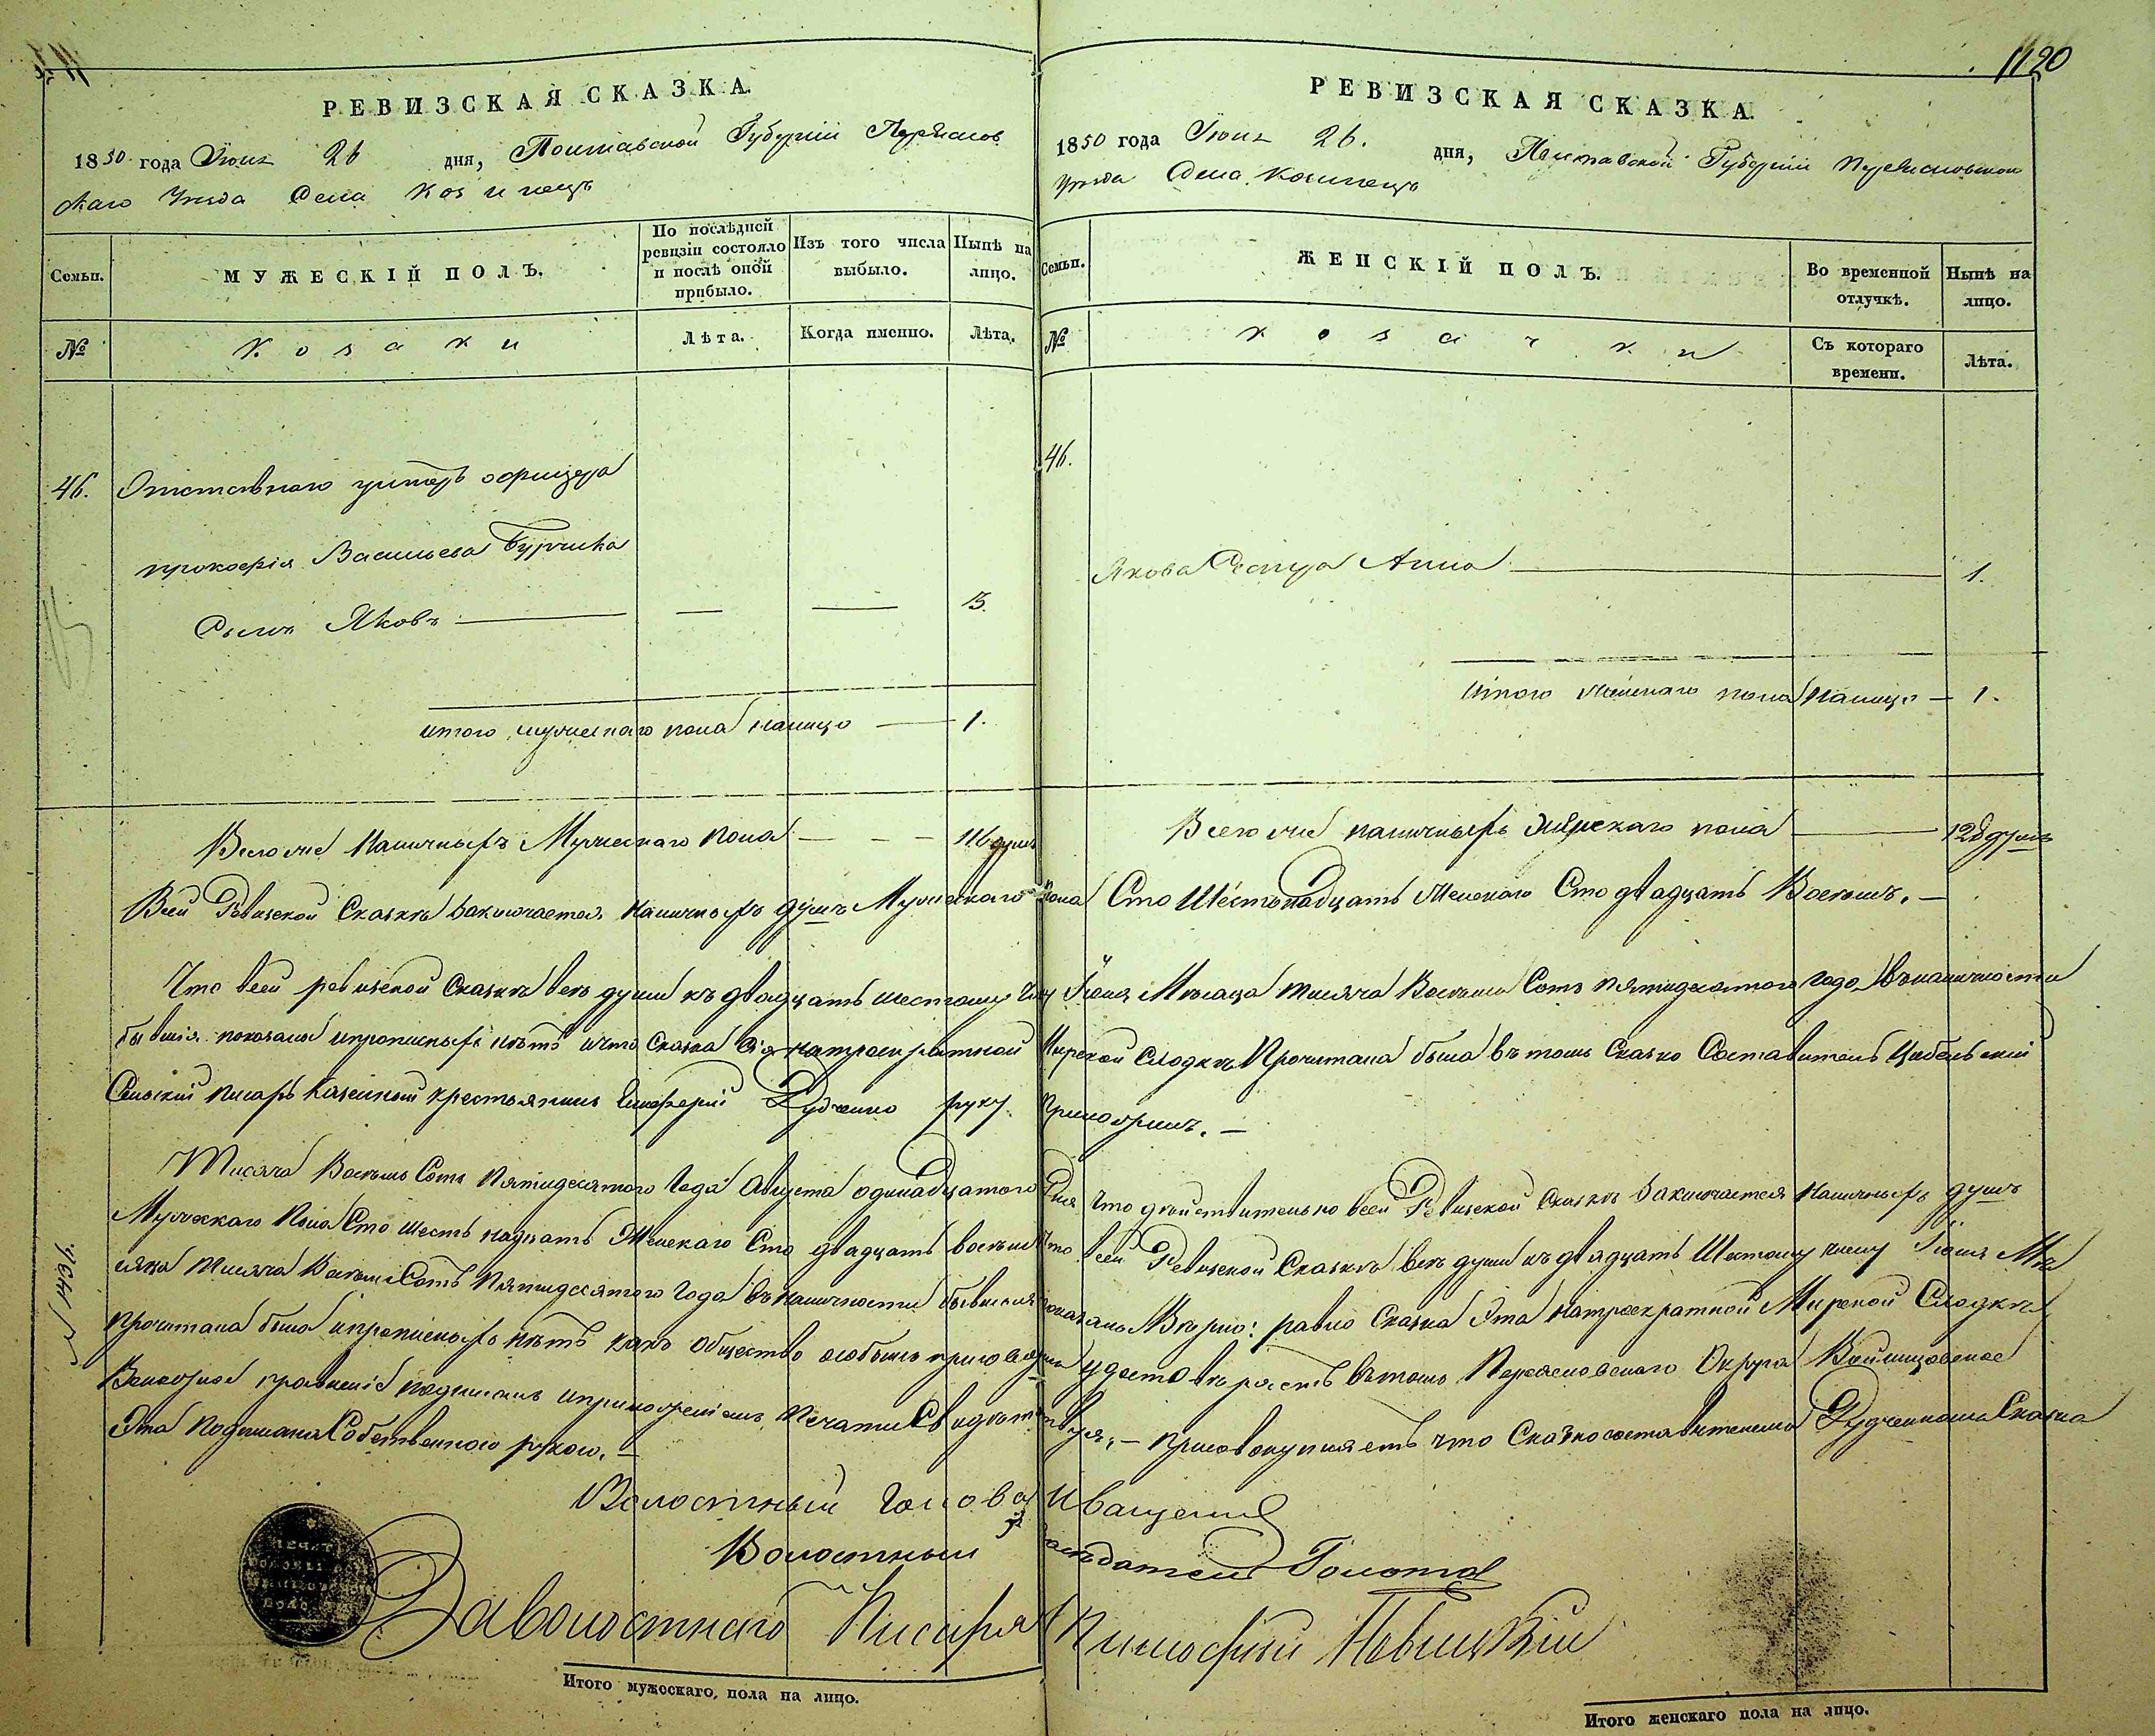 РЕВИЗСКАЯ СКАЗКА.
1850 года Июня 26 дня, Полтавской Губерніи Переяслов
скаго Уезда Села Козинецъ
Семьи.
МУЖЕСКІЙ ПОЛЪ.
По послѣдней ревизіи состояло и послѣ оной прибыло.
Изъ того числа выбыло.
Нынѣ на лицо.
№
Козаки
Лѣта.
Когда именно.
Лѣта.
46. Отставнаго унтеръ офицера
прокофія Васильева Бурчика
Сынъ Яковъ 13.
итого мужескаго пола налицо 1.
1120
РЕВИЗСКАЯ СКАЗКА.
1850 года Июня 26. дня, Полтавской Губерніи Переясловскаго
Уезда Села Козинецъ
Семьи.
ЖЕНСКІЙ ПОЛЪ.
Во временной отлучкѣ.
Нынѣ на лицо.
№
Козачки
Съ котораго времени.
Лѣта.
46.
Якова Сестра Анна 1.
Итого Женскаго пола Налицо 1.
Всего же Наличныхъ Мужескаго Пола 116 душъ
Всего же наличныхъ Женскаго пола 128 душъ
Всей Ревизской Сказкѣ Заключается Наличныхъ душъ Мужескаго пола Сто Шестьнадцать Женскаго Сто двадцать Восемь.
Что всей ревизской Сказкѣ всѣ души къ двадцать шестому числу Іюня Мѣсяца тысяча Восемь Сотъ пятидесятого года въ наличности
бывшія показаны и прописныхъ нѣтъ и что Сказка Сія натроекратной Мирской Сходкѣ Прочитана была въ томъ Сказко Составитель
Сельскій писарь казенный крестьянинъ Дудченко руку приложилъ.
Тысяча Восемь Сотъ Пятидесятого Года Августа одинадцатого Дня Что действительно всей Ревизской Сказкѣ Заключается Наличныхъ душъ
Мужескаго Пола Сто шесть надцать Женскаго Сто двадцать восемь что всей Ревизской Сказкѣ всѣ души къ двадцать Шестому числу Іюня Мѣ
сяца Тысяча Восемь Сотъ Пятидесятого Года въ наличности бывшія показаны Вѣрно: равно Сказка Эта Натроекратной Мирской Сходкѣ
прочитана была и прописныхъ нѣтъ какъ общество особымъ приговоромъ удостовѣряетъ въ томъ Переясловскаго Округа Войницовское
Волостное правленіе подписомъ и приложеніемъ Печати Свидетельствуя, присовокупляетъ что Сказкосоставителемъ Дудченкомъ Сказка
Эта Подписана Собственною рукою.
Волостный Голова Иващенко
Волостный Засѣдатель Голота
За волостного Писаря
Итого мужескаго, пола на лицо.
Итого женскаго пола на лицо.